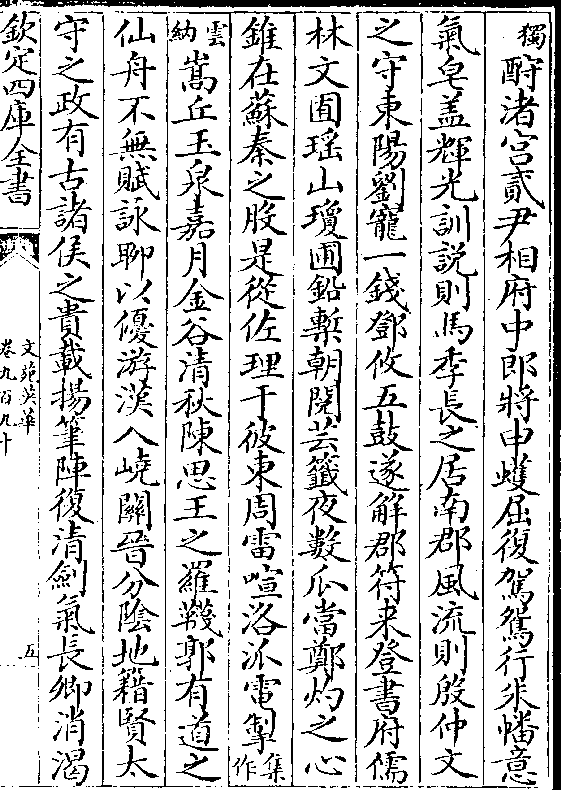 獨酹渚宫貳尹相府中郎將申蠖屈復駕鴛行朱幡意
氣皂盖輝光訓說則馬季長之居南郡風流則殷仲文
之守東陽劉寵一錢鄧攸五鼓遂解郡符来登書府儒
林文囿瑶山瓊圃鉛槧朝閱芸籤夜數瓜當鄭灼之心
錐在蘇秦之股是從佐理于彼東周雷喧洛汭電掣集作
雲納嵩丘玉泉嘉月金谷清秋陳思王之羅韈郭有道之
仙舟不無賦詠聊以優游漢入嶢關晉分陰地籍賢太
守之政有古諸侯之貴載揚筆陣復清劍氣長卿消渴
欽定四庫全書
文苑英華
卷九百九十
五